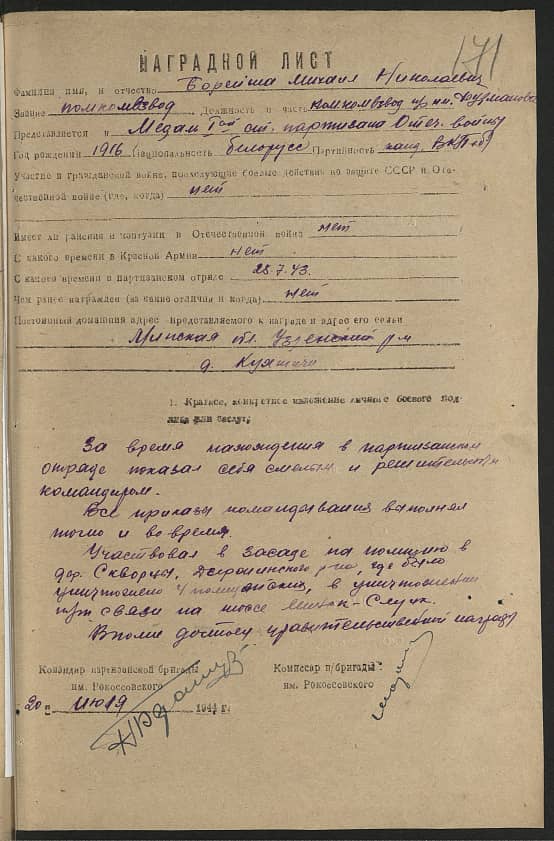 171
НАГРАДНОЙ ЛИСТ
Фамилия имя, и отчество Борейша Михаил Николаевич
Звание помкомвзвод Должность и часть
Представляется к Медали I ой ст. партизана Отеч. войны
Год рождения 1916 национальность белорусс Партийность канд. ВКП(б)
Участие в гражданской войне, последующие боевые действия по защите СССР и Оте-
чественной войне (где, когда) нет
Имеет ли ранения и контузии в Отечественной войне нет
С какого времени в Красной Армии нет
С какого времени в партизанском отряде 28.7.43.
Чем ранее награжден (за какие отличия и когда) нет
Постоянный домашний адрес представляемого к награде и адрес его семьи
Минская обл. Узденский р-н
д.
1. Краткое, конкретное изложение личного боевого под-
вига или заслуг;
За время нахождения в партизанском
отряде показал себя смелым и решительным
командиром.
Все приказы командования выполнял
точно и во время.
Участвовал в засаде на полицию в
дер. Скворцы, Дзержинского р-на, где было
уничтожено полицейских, в уничтожении
связи на шоссе Минск-Слуцк.
Вполне достоин правительственной награды
Командир партизанской бригады Комиссар п/бригады
им. Рокоссовского им. Рокоссовского
20 " июля 1944 г.